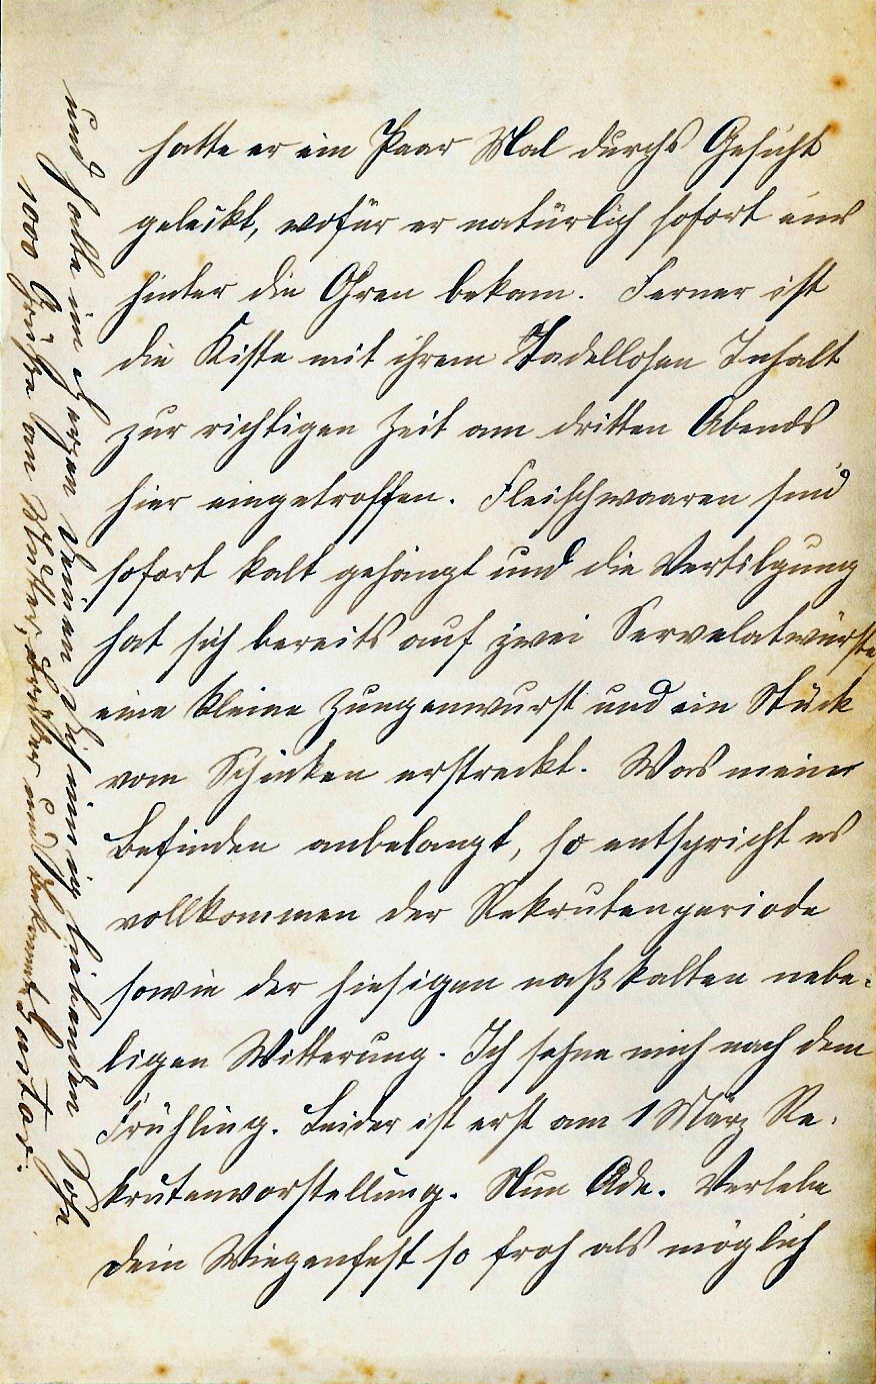 hatte er ein Paar Mal durchs Gesicht
geleckt, wofür er natürlich sofort eins
hinter die Ohren bekam. Ferner ist
die Kiste mit ihrem Tadellosen Inhalt
zur richtigen Zeit am dritten Abends
hier eingetroffen. Fleischwaaren sind
sofort kalt gehängt und die Vertilgung
hat sich bereits auf zwei Servelatwürste
eine kleine Zungenwurst und ein Stück
vom Schinken erstreckt. Was mein
Befinden anbelangt, so entspricht es
vollkommen der Rekrutenperiode
sowie der hiesigen naßkalten nebe-
ligen Witterung. Ich sehne mich nach dem
Frühling. Leider ist erst am 1 März Re-
krutenvorstellung. Nun Ade. Verlebe
Dein Wiegenfest so froh als möglich
und halte im Herzen Deinen Dich innig liebenden Sohn
1000 Grüße an Mutter, Brüder und Bekannte